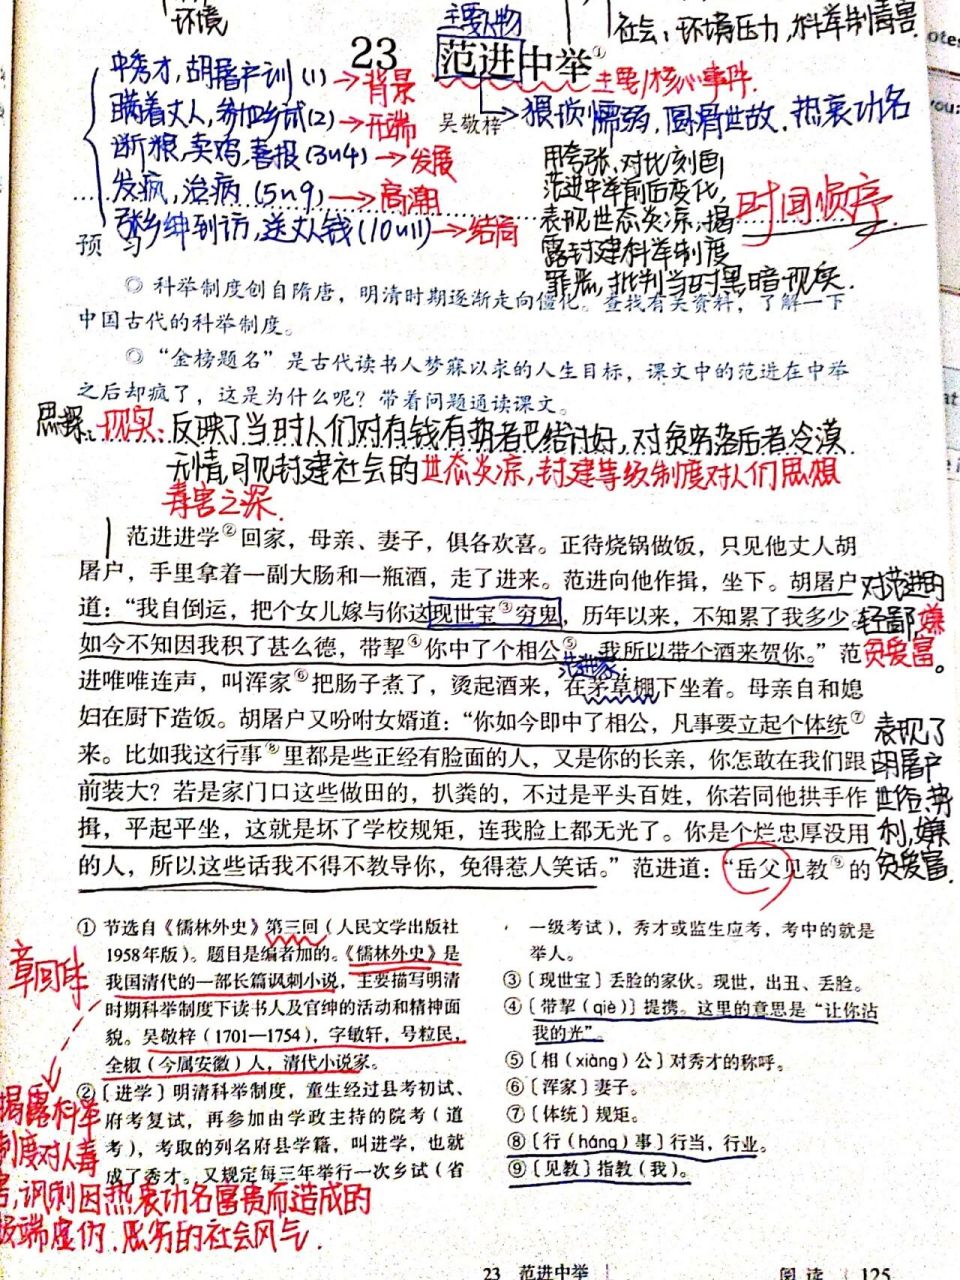 环境
主要人物
社会：环境压力，科举制毒害.
23 范进中举①
主要/核心事件.
中秀才，胡屠户训(1)→背景
瞒着丈人，参加乡试(2)→开端
断粮，卖鸡，喜报(3~4)→发展
发疯，治病(5~9)→高潮
张乡绅到访，送丈人钱(10~11)→结局
吴敬梓
猥琐懦弱，圆滑世故，热衷功名
用夸张、对比刻画
范进中举前后变化，
表现世态炎凉，揭
露封建科举制度
罪恶，批判当时黑暗现实.
时间顺序.
预 习
◎ 科举制度创自隋唐，明清时期逐渐走向僵化。查找有关资料，了解一下
中国古代的科举制度。
◎ “金榜题名”是古代读书人梦寐以求的人生目标，课文中的范进在中举
之后却疯了，这是为什么呢？带着问题通读课文。
思探. 现实：反映了当时人们对有钱有势者巴结讨好，对贫穷落后者冷漠
无情，可见封建社会的世态炎凉，封建等级制度对人们思想
毒害之深.
范进进学②回家，母亲、妻子，俱各欢喜。正待烧锅做饭，只见他丈人胡
屠户，手里拿着一副大肠和一瓶酒，走了进来。范进向他作揖，坐下。胡屠户
道：“我自倒运，把个女儿嫁与你这现世宝③穷鬼，历年以来，不知累了我多少。
如今不知因我积了甚么德，带挈④你中了个相公⑤，我所以带个酒来贺你。”范
进唯唯连声，叫浑家⑥把肠子煮了，烫起酒来，在茅草棚下坐着。母亲自和媳
妇在厨下造饭。胡屠户又吩咐女婿道：“你如今既中了相公，凡事要立起个体统⑦
来。比如我这行事⑧里都是些正经有脸面的人，又是你的长亲，你怎敢在我们跟
前装大？若是家门口这些做田的，扒粪的，不过是平头百姓，你若同他拱手作
揖，平起平坐，这就是坏了学校规矩，连我脸上都无光了。你是个烂忠厚没用
的人，所以这些话我不得不教导你，免得惹人笑话。”范进道：“岳父见教⑨的
对范进的
轻鄙，嫌
贫爱富。
范进家：
表现了
胡屠户
世俗、势
利，嫌
贫爱富.
① 节选自《儒林外史》第三回（人民文学出版社
1958年版）。题目是编者加的。《儒林外史》是
我国清代的一部长篇讽刺小说，主要描写明清
时期科举制度下读书人及官绅的活动和精神面
貌。吴敬梓（1701—1754），字敏轩，号粒民，
全椒（今属安徽）人，清代小说家。
②〔进学〕明清科举制度，童生经过县考初试、
府考复试，再参加由学政主持的院考（道
考），考取的列名府县学籍，叫进学，也就
成了秀才。又规定每三年举行一次乡试（省
一级考试），秀才或监生应考，考中的就是
举人。
③〔现世宝〕丢脸的家伙。现世，出丑、丢脸。
④〔带挈（qiè）〕提携。这里的意思是“让你沾
我的光”。
⑤〔相（xiàng）公〕对秀才的称呼。
⑥〔浑家〕妻子。
⑦〔体统〕规矩。
⑧〔行（háng）事〕行当，行业。
⑨〔见教〕指教（我）。
章回体
揭露科举
制度对人毒
害，讽刺因热衷功名富贵而造成的
极端虚伪、恶劣的社会风气.
23 范进中举 阅 读 125